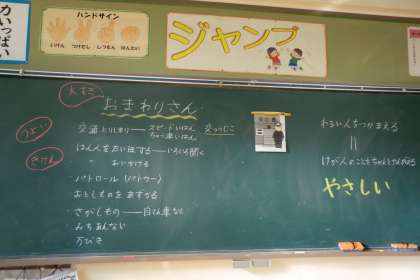 力いっぱい
ハンドサイン
いけん
つけたし
しつもん
はんたい
ジャンプ
大すき
おまわりさん
つよい
きけん
交通とりしまり――スピードいはん
ちゅう車いはん
交つうじこ
はん人をたいほする――いろいろ聞く
〃 おいかける
・パトロール(パトカー)
・おとしものをあずかる
・さがしもの――自てん車など
・みちあんない
万びき
わるい人をつかまえる
||
けが人のこともちゃんと
やさしい